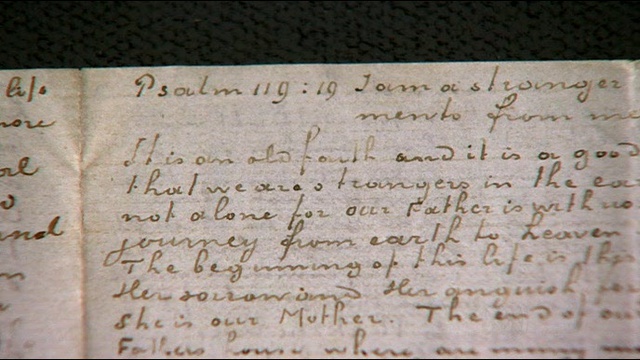 life
more
and
Psalm 119:19 I am a stranger
ments from me
It is an old faith and it is a good
that we are strangers in the ea
not alone for our Father is with us
journey from earth to heaven
The beginning of this life is
Her sorrow and Her anguish
She is our Mother. The end of ou
Fathers house where are many